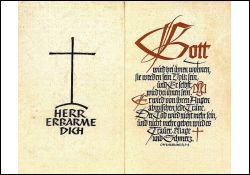 HERR
ERBARME
DICH
Gott
wird bei ihnen wohnen,
sie werden sein Volk sein,
und Er selbst
wird bei ihnen sein.
Er wird von ihren Augen
abwischen jede Träne.
Der Tod wird nicht mehr sein
und nicht mehr geben wird es
Trauer, Klage
und Schmerz.